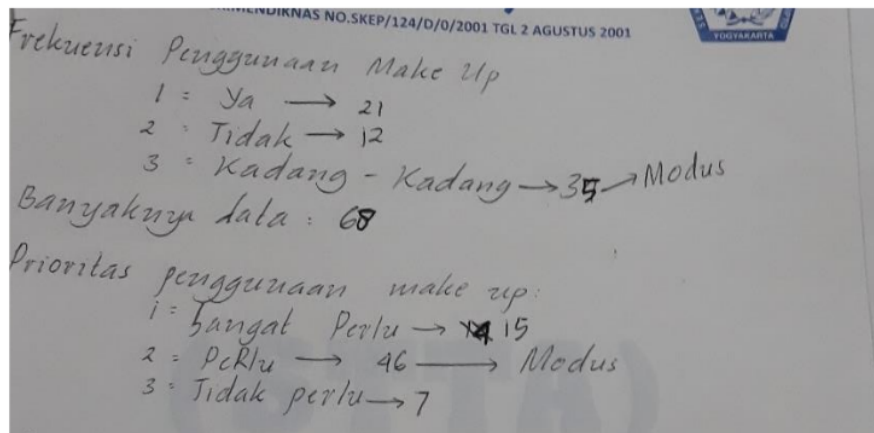 NDIKNAS NO.SKEP/124/D/0/2001 TGL 2 AGUSTUS 2001
YOGYAKARTA
Frekuensi Penggunaan Make Up
1 = Ya → 21
2 = Tidak → 12
3 = Kadang - Kadang → 35 → Modus
Banyaknya data : 68
Prioritas penggunaan make up:
1 = Sangat Perlu → 15
2 = Perlu → 46 → Modus
3 = Tidak perlu → 7
(STTA)